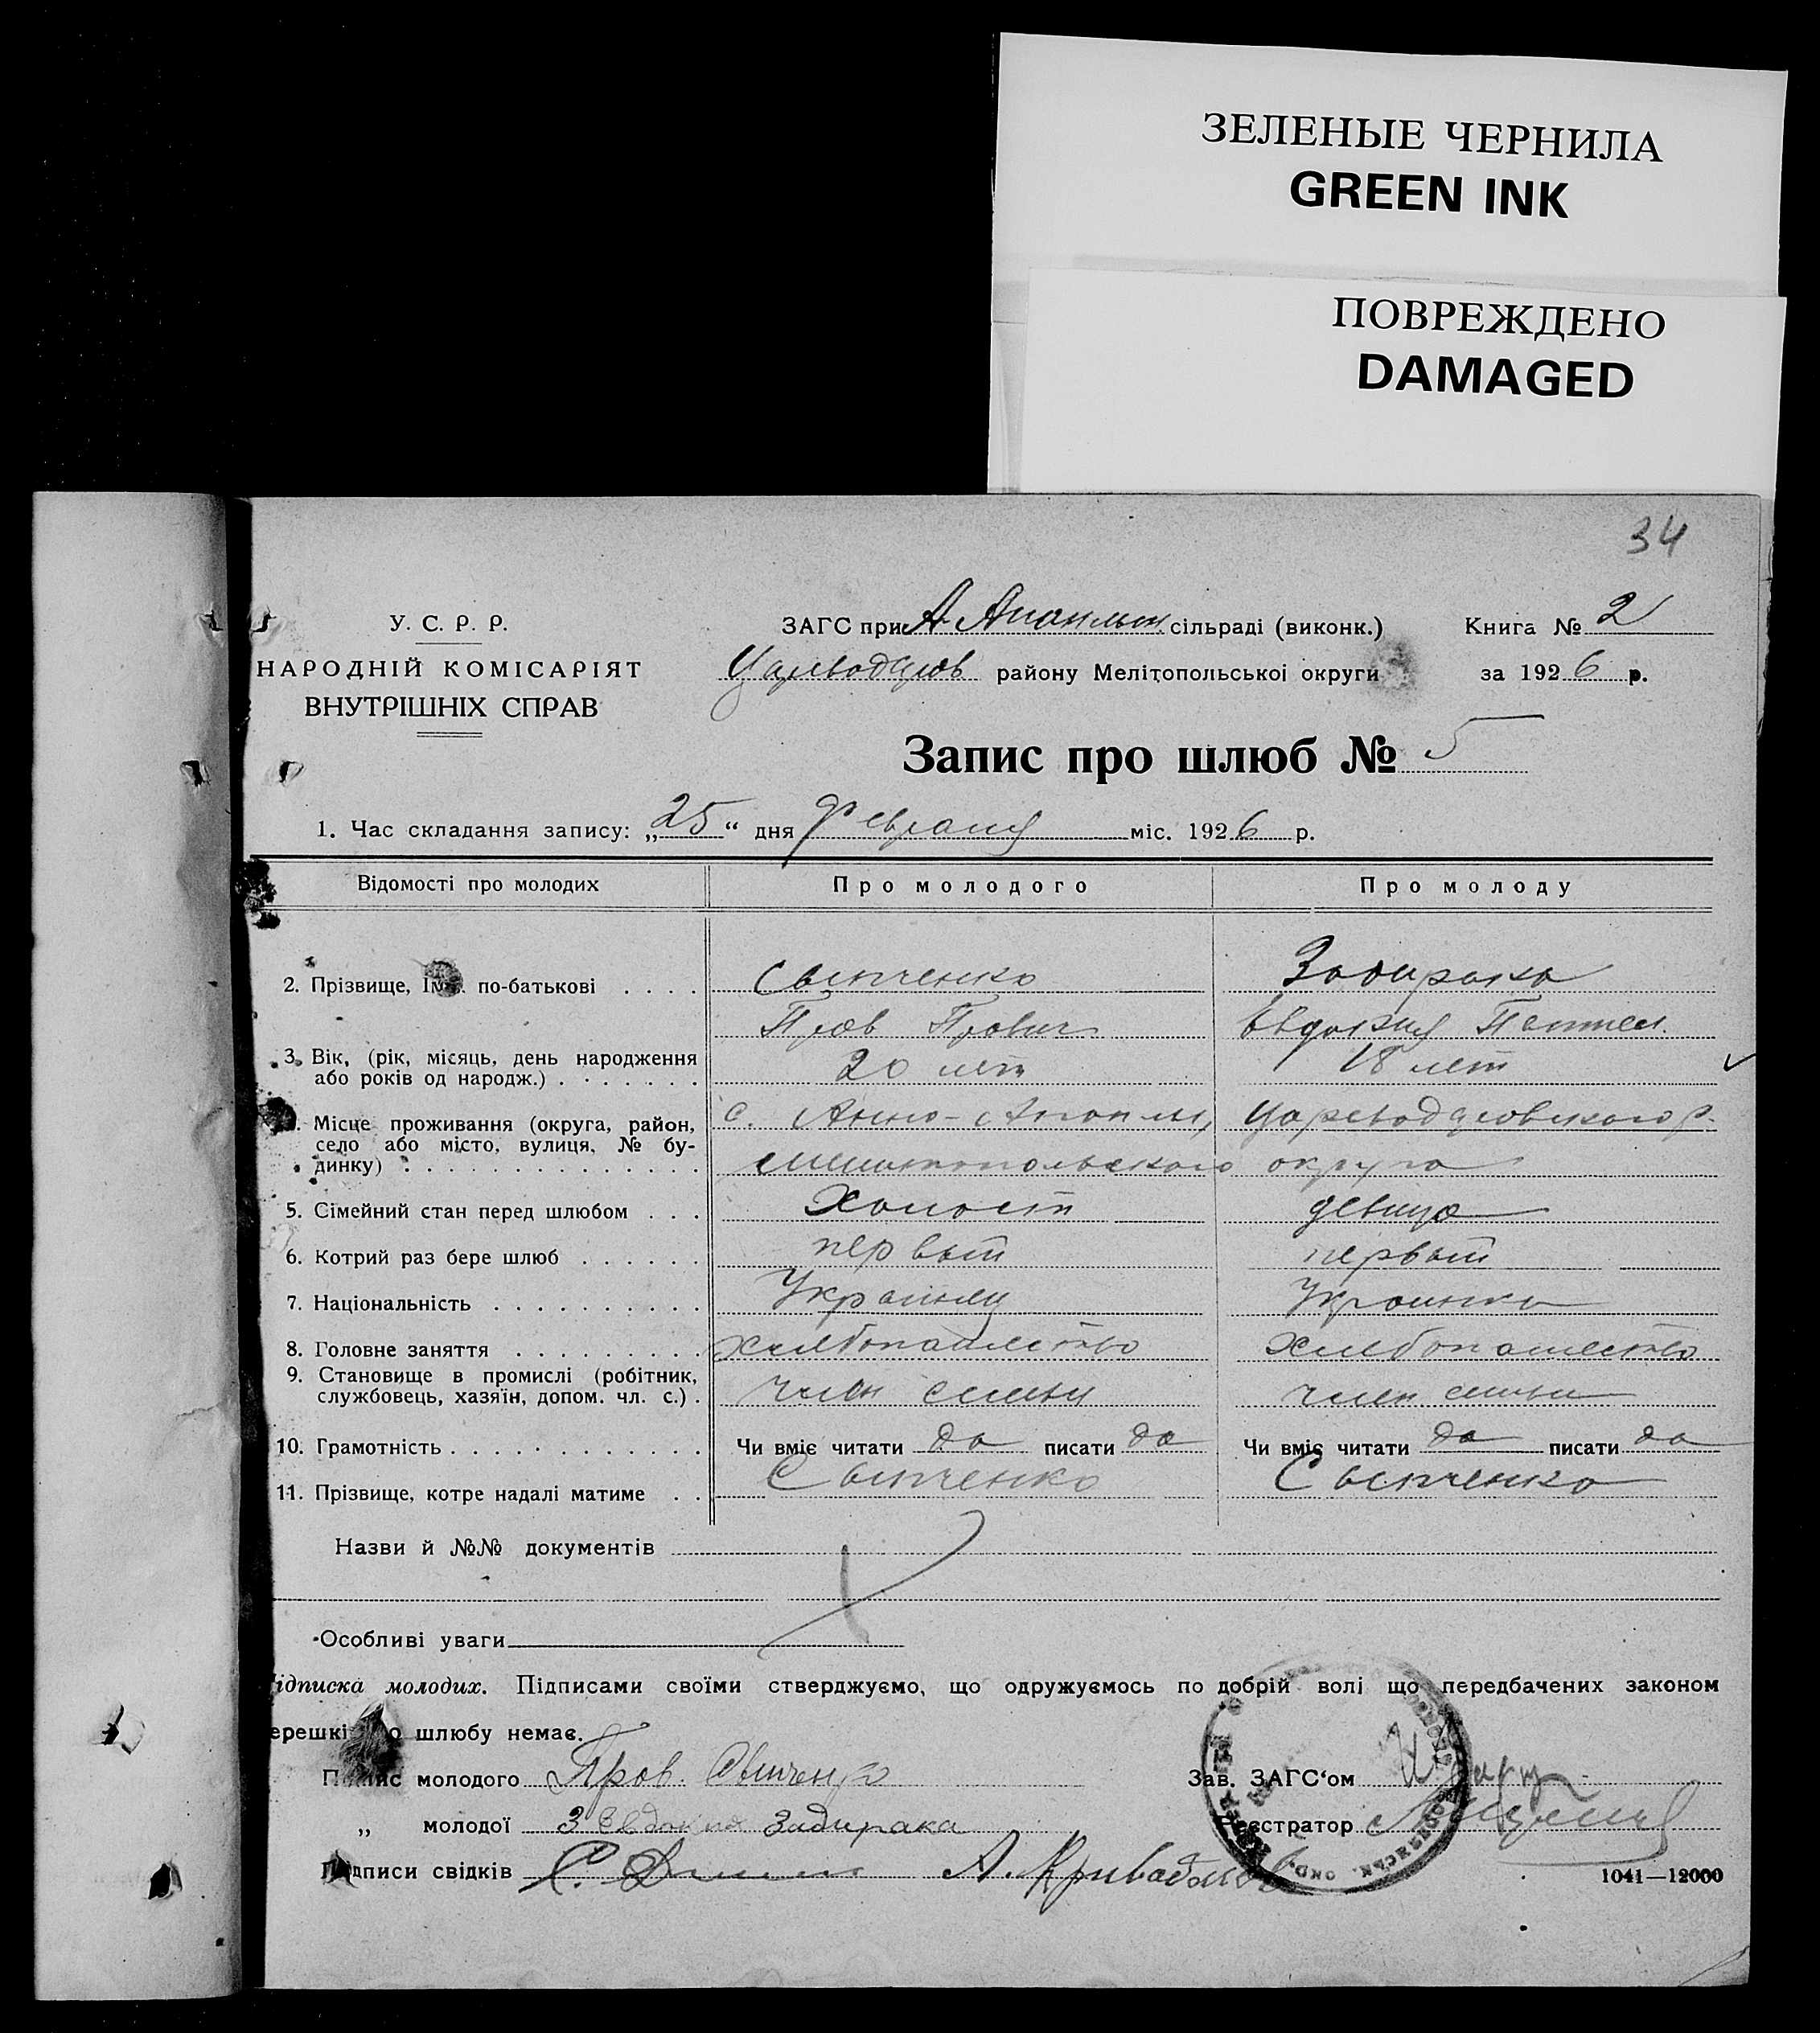 ЗЕЛЕНЫЕ ЧЕРНИЛА
GREEN INK
ПОВРЕЖДЕНО
DAMAGED
34
У. С. Р. Р.
НАРОДНІЙ КОМІСАРІЯТ
ВНУТРІШНІХ СПРАВ
ЗАГС при А. сільраді (виконк.) Книга № 2
району Мелітопольської округи за 1926 р.
Запис про шлюб № 5
1. Час складання запису: „25“ дня Февраля міс. 1926 р.
Відомості про молодих Про молодого Про молоду
2. Прізвище, по-батькові . . . . Сыпченко Задирака
Пров Прович Евдокия
3. Вік, (рік, місяць, день народження
або років од народж.) . . . . . . . 20 лет 18 лет
Місце проживання (округа, район,
село або місто, вулиця, № бу-
динку) . . . . . . . . . . . . . . .
с. Анно- Цареводаровского р.
Мелитопольского округа
5. Сімейний стан перед шлюбом . . . Холост девица
6. Котрий раз бере шлюб . . . . . . первый первый
7. Національність . . . . . . . . . . Украинец Украинка
8. Головне заняття . . . . . . . . . Хлебопашество Хлебопашество
9. Становище в промислі (робітник,
службовець, хазяїн, допом. чл. с.) . член семьи член семьи
10. Грамотність . . . . . . . . . . . . Чи вміє читати да писати да Чи вміє читати да писати да
11. Прізвище, котре надалі матиме . . Сыпченко Сыпченко
Назви й №№ документів
Особливі уваги
ідписка молодих. Підписами своїми стверджуємо, що одружуємось по добрій волі що передбачених законом
ерешкі о шлюбу немає.
молодого Пров. Сыпченко Зав. ЗАГС‘ом
„ молодої З Евдокия Задирака Реєстратор
Підписи свідків С. А.
1041—12000